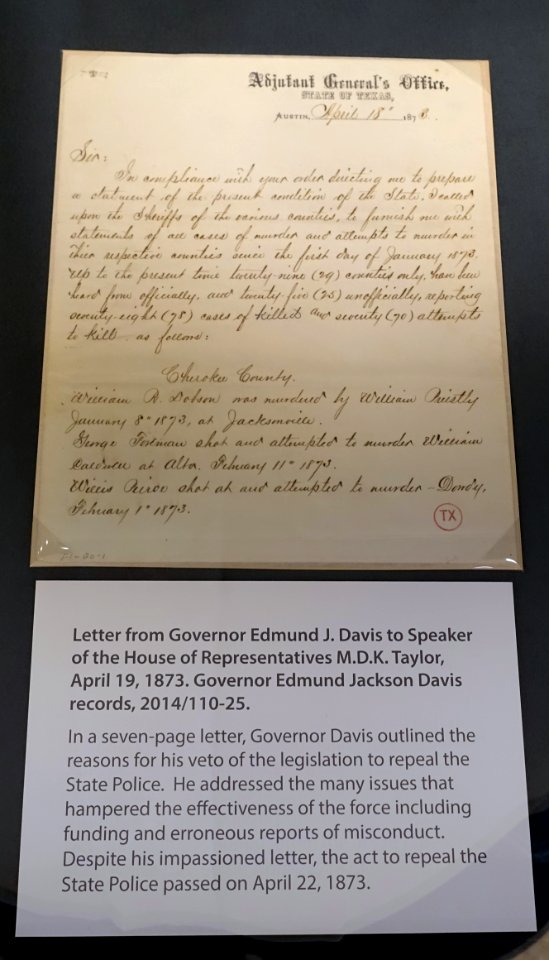 Adjutant General's Office,
STATE OF TEXAS,
AUSTIN, April 18" 1873.
Sir:
In compliance with your order directing me to prepare
a statment of the present condition of the State, I called
upon the Sheriffs of the various counties, to furnish me with
statements of all cases of murder and attempts to murder in
thier respective counties since the first day of January 1873.
Up to the present time twenty-nine (29) counties only, have been
heard from officially, and twenty-five (25) unofficially, reporting
seventy-eight (78) cases of killed and seventy (70) attempts
to kill, as follows:
Cherokee County.
William R. Dobson was murdered by William Priestly
January 8" 1873, at Jacksonville.
George Foreman shot and attempted to murder William
at Alto, February 11" 1873.
Willis shot at and attempted to murder – Dondy,
February 1" 1873.
TX
Letter from Governor Edmund J. Davis to Speaker
of the House of Representatives M.D.K. Taylor,
April 19, 1873. Governor Edmund Jackson Davis
records, 2014/110-25.
In a seven-page letter, Governor Davis outlined the
reasons for his veto of the legislation to repeal the
State Police.  He addressed the many issues that
hampered the effectiveness of the force including
funding and erroneous reports of misconduct.
Despite his impassioned letter, the act to repeal the
State Police passed on April 22, 1873.